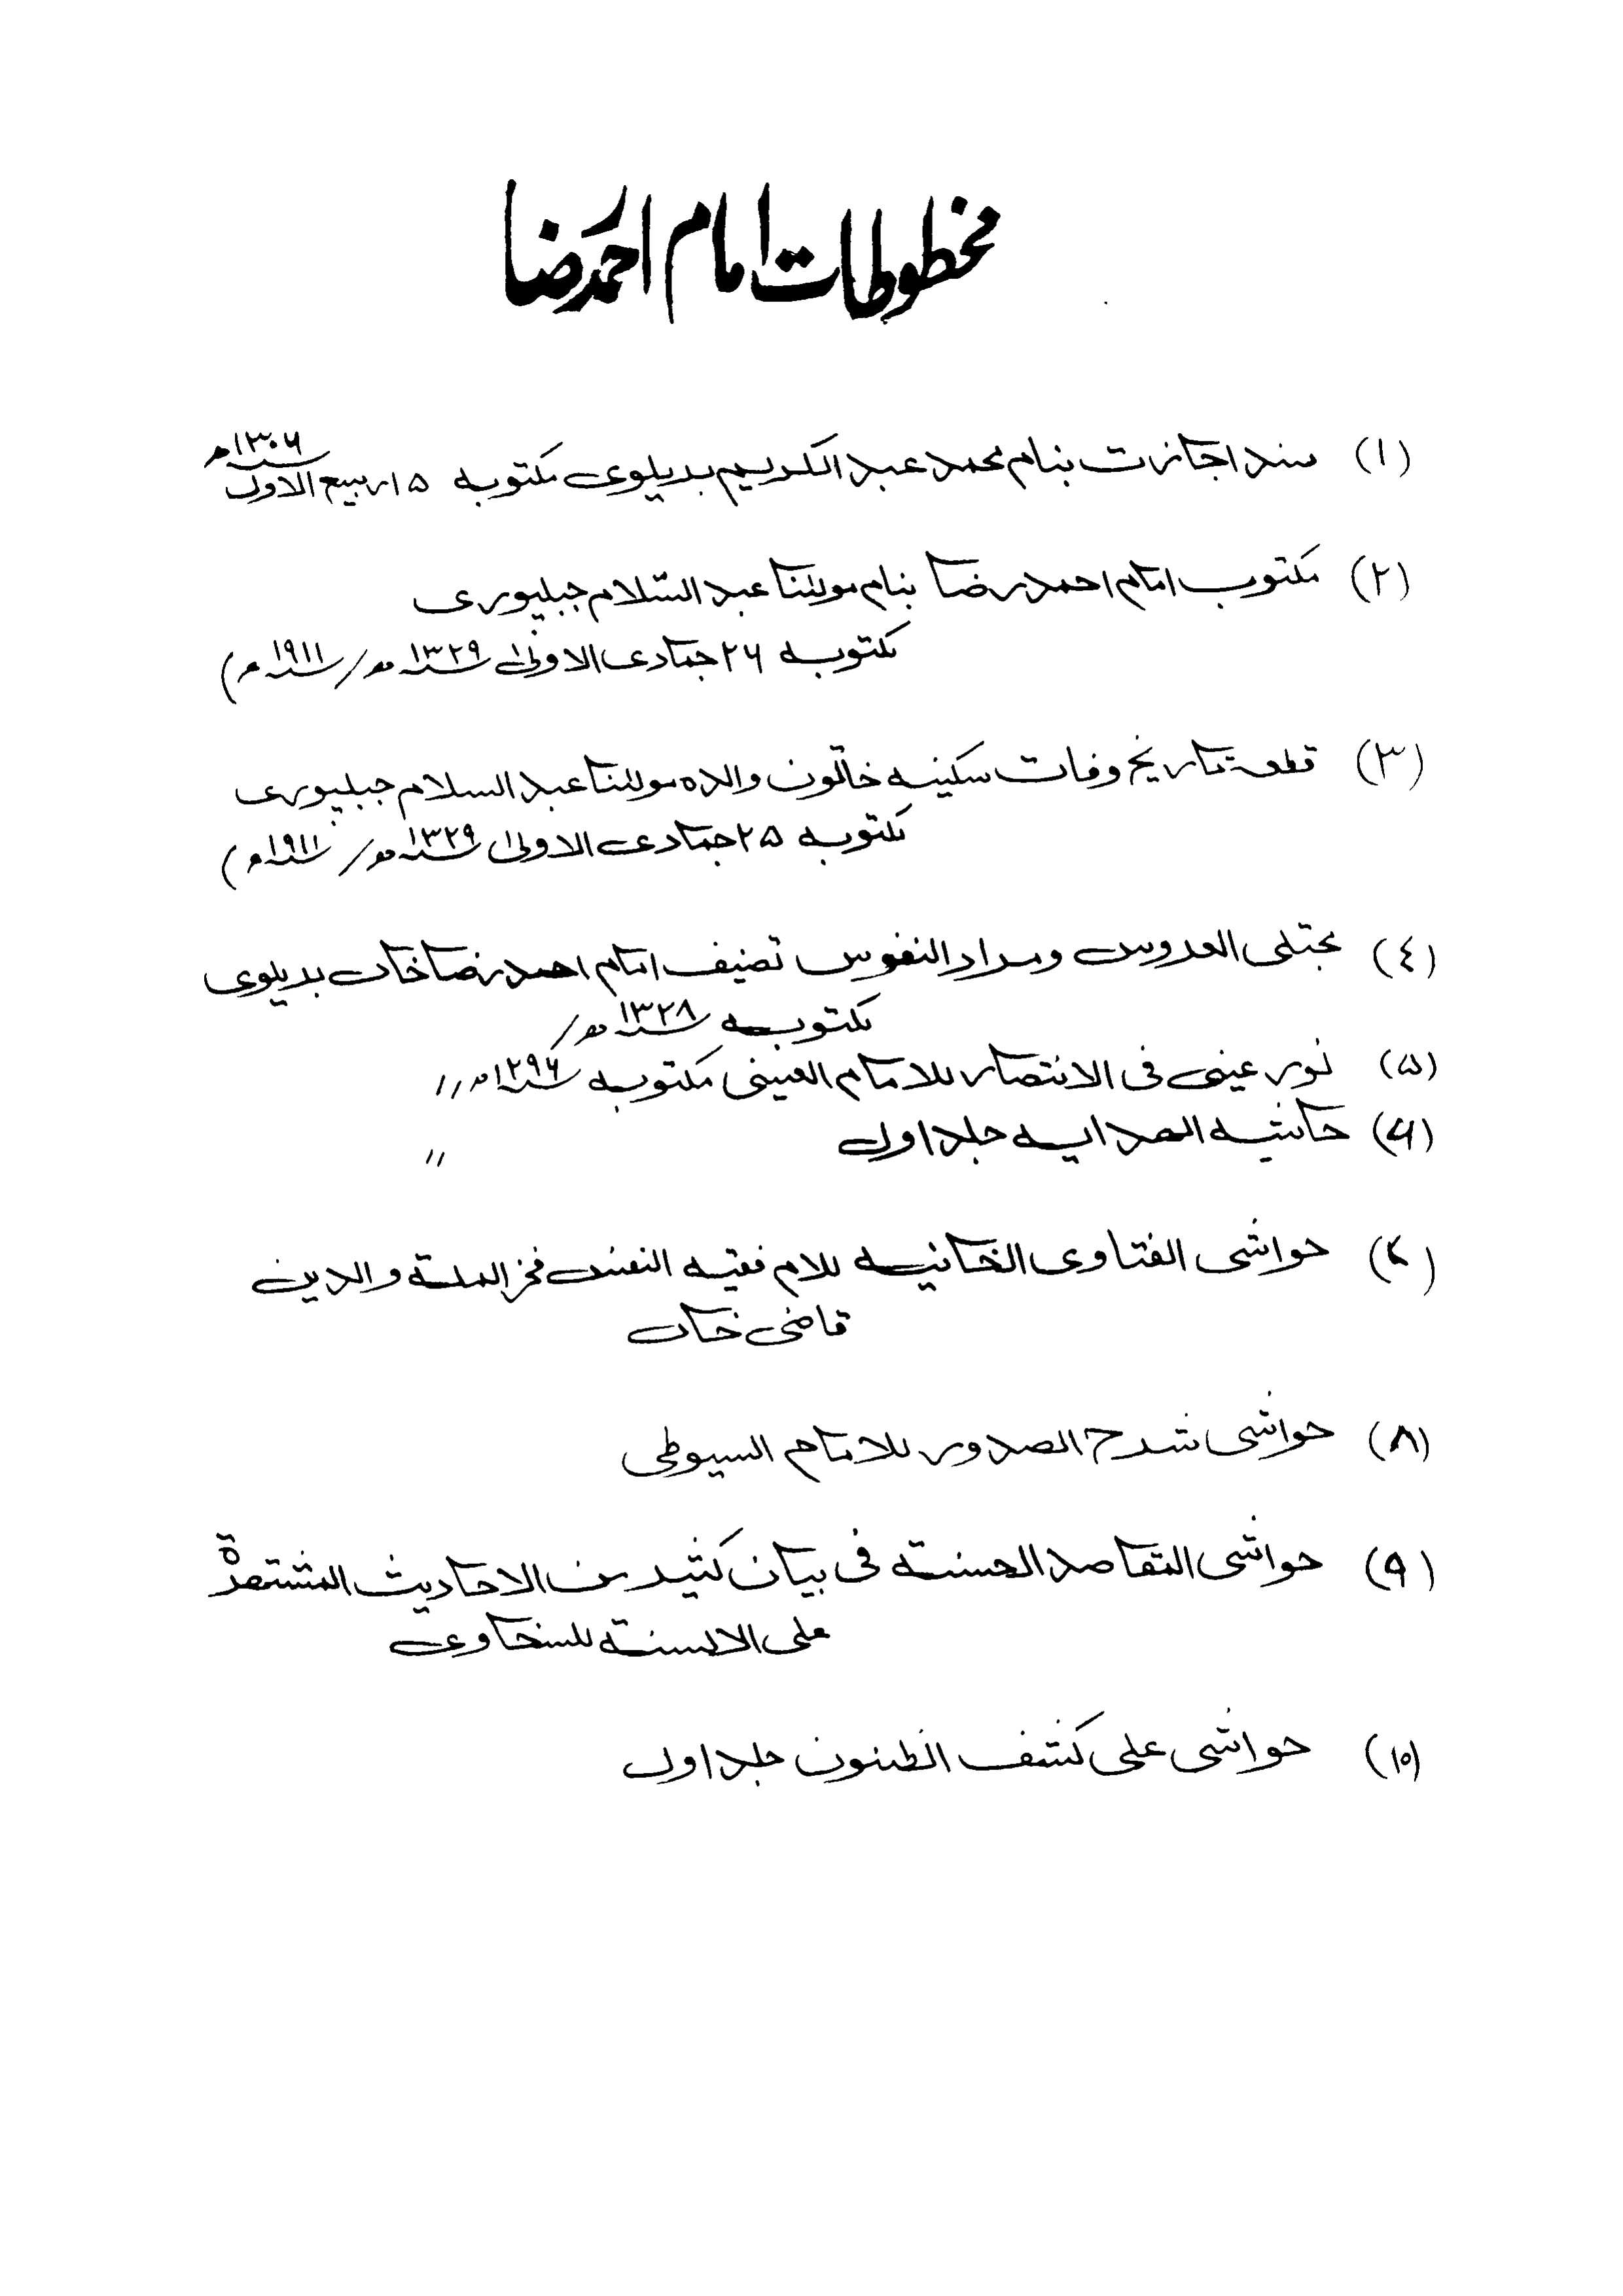 مخطوطات امام احمد رضا
(۱) سند اجازت بنام محمد عبد الکریم بریلوی مکتوبہ ۱۵ ربیع الاول ۱۳۰۶ھ
(۲) مکتوب امام احمد رضا بنام مولٰنا عبد السّلام جبلپوری
مکتوبہ ۲۶ جمادی الاولیٰ ۱۳۲۹ھ / ۱۹۱۱ء)
(۳) قطعۃ تاریخ وفات سکینہ خاتون والدہ مولٰنا عبد السلام جبلپوری
مکتوبہ ۲۵ جمادی الاولیٰ ۱۳۲۹ھ / ۱۹۱۱ء)
(٤) مجتلی العروس ومراد النفوس تصنیف امام احمد رضا خاں بریلوی
مکتوبہ ۱۳۲۸ھ /
(۵) نور عینی فی الانتصار للامام العینی مکتوبہ ۱۲۹۶ھ 〃
(۶) حاشیہ الھدایہ جلد اول 〃
(۷) حواشی الفتاوی الخانیہ للام فقیہ النفس فخر الملۃ والدین
قاضی خاں
(۸) حواشی شرح الصدور للامام السیوطی
(۹) حواشی المقاصد الحسنۃ فی بیان کثیر من الاحادیث المشتھرۃ
علی الالسنۃ للسخاوی
(۱۰) حواشی علی کشف الظنون جلد اول